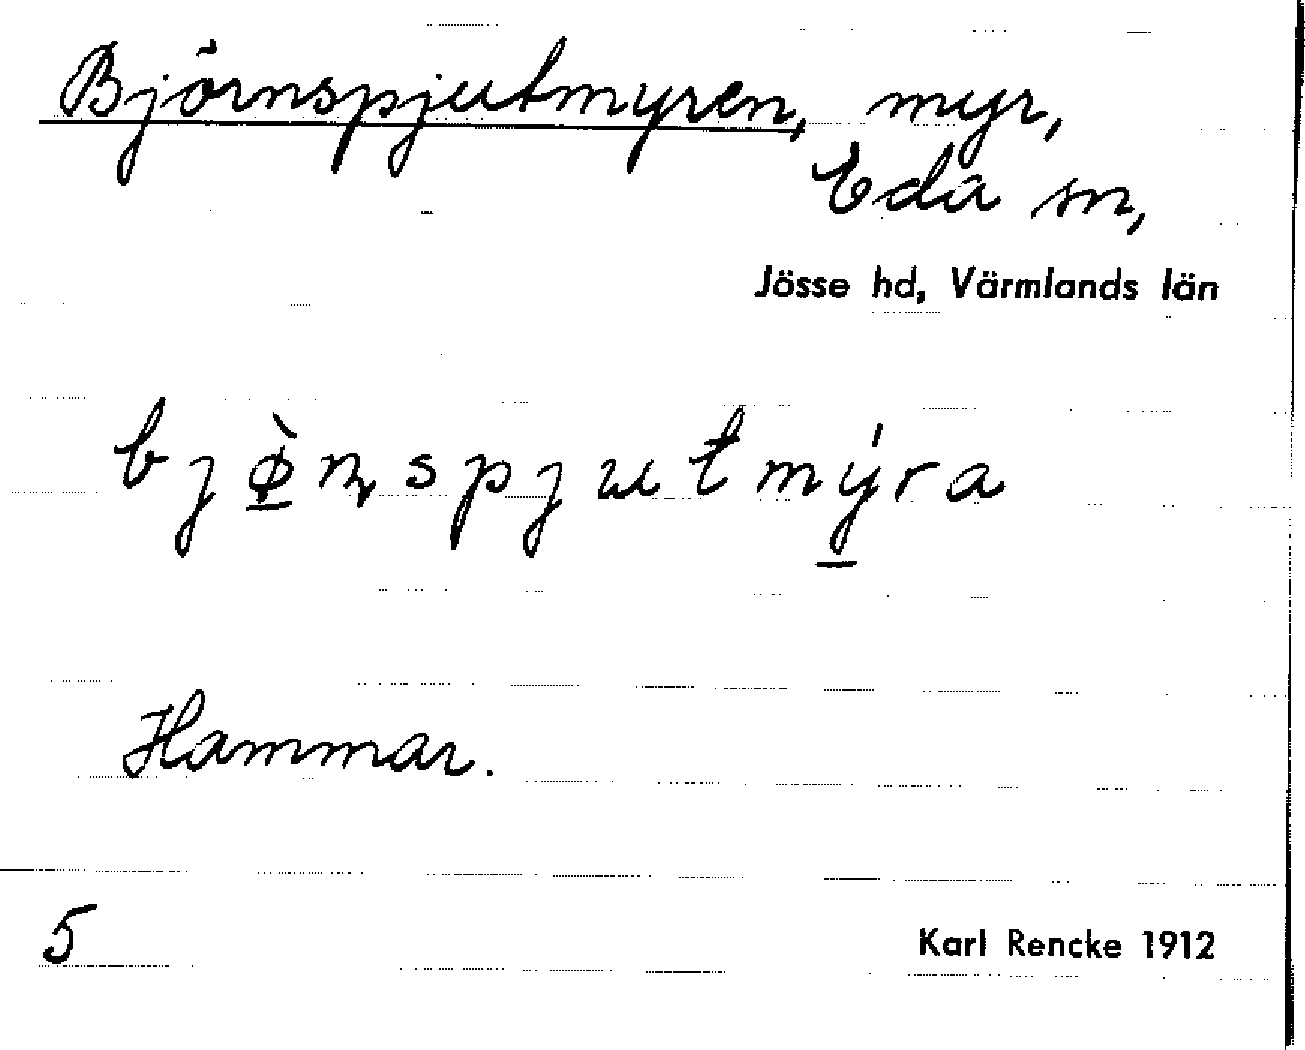 Björnspjutmyren, myr,
Eda sn,
Jösse hd, Värmlands län
bjø̱̀ɳspjutmý̱ra
Hammar.
5
Karl Rencke 1912